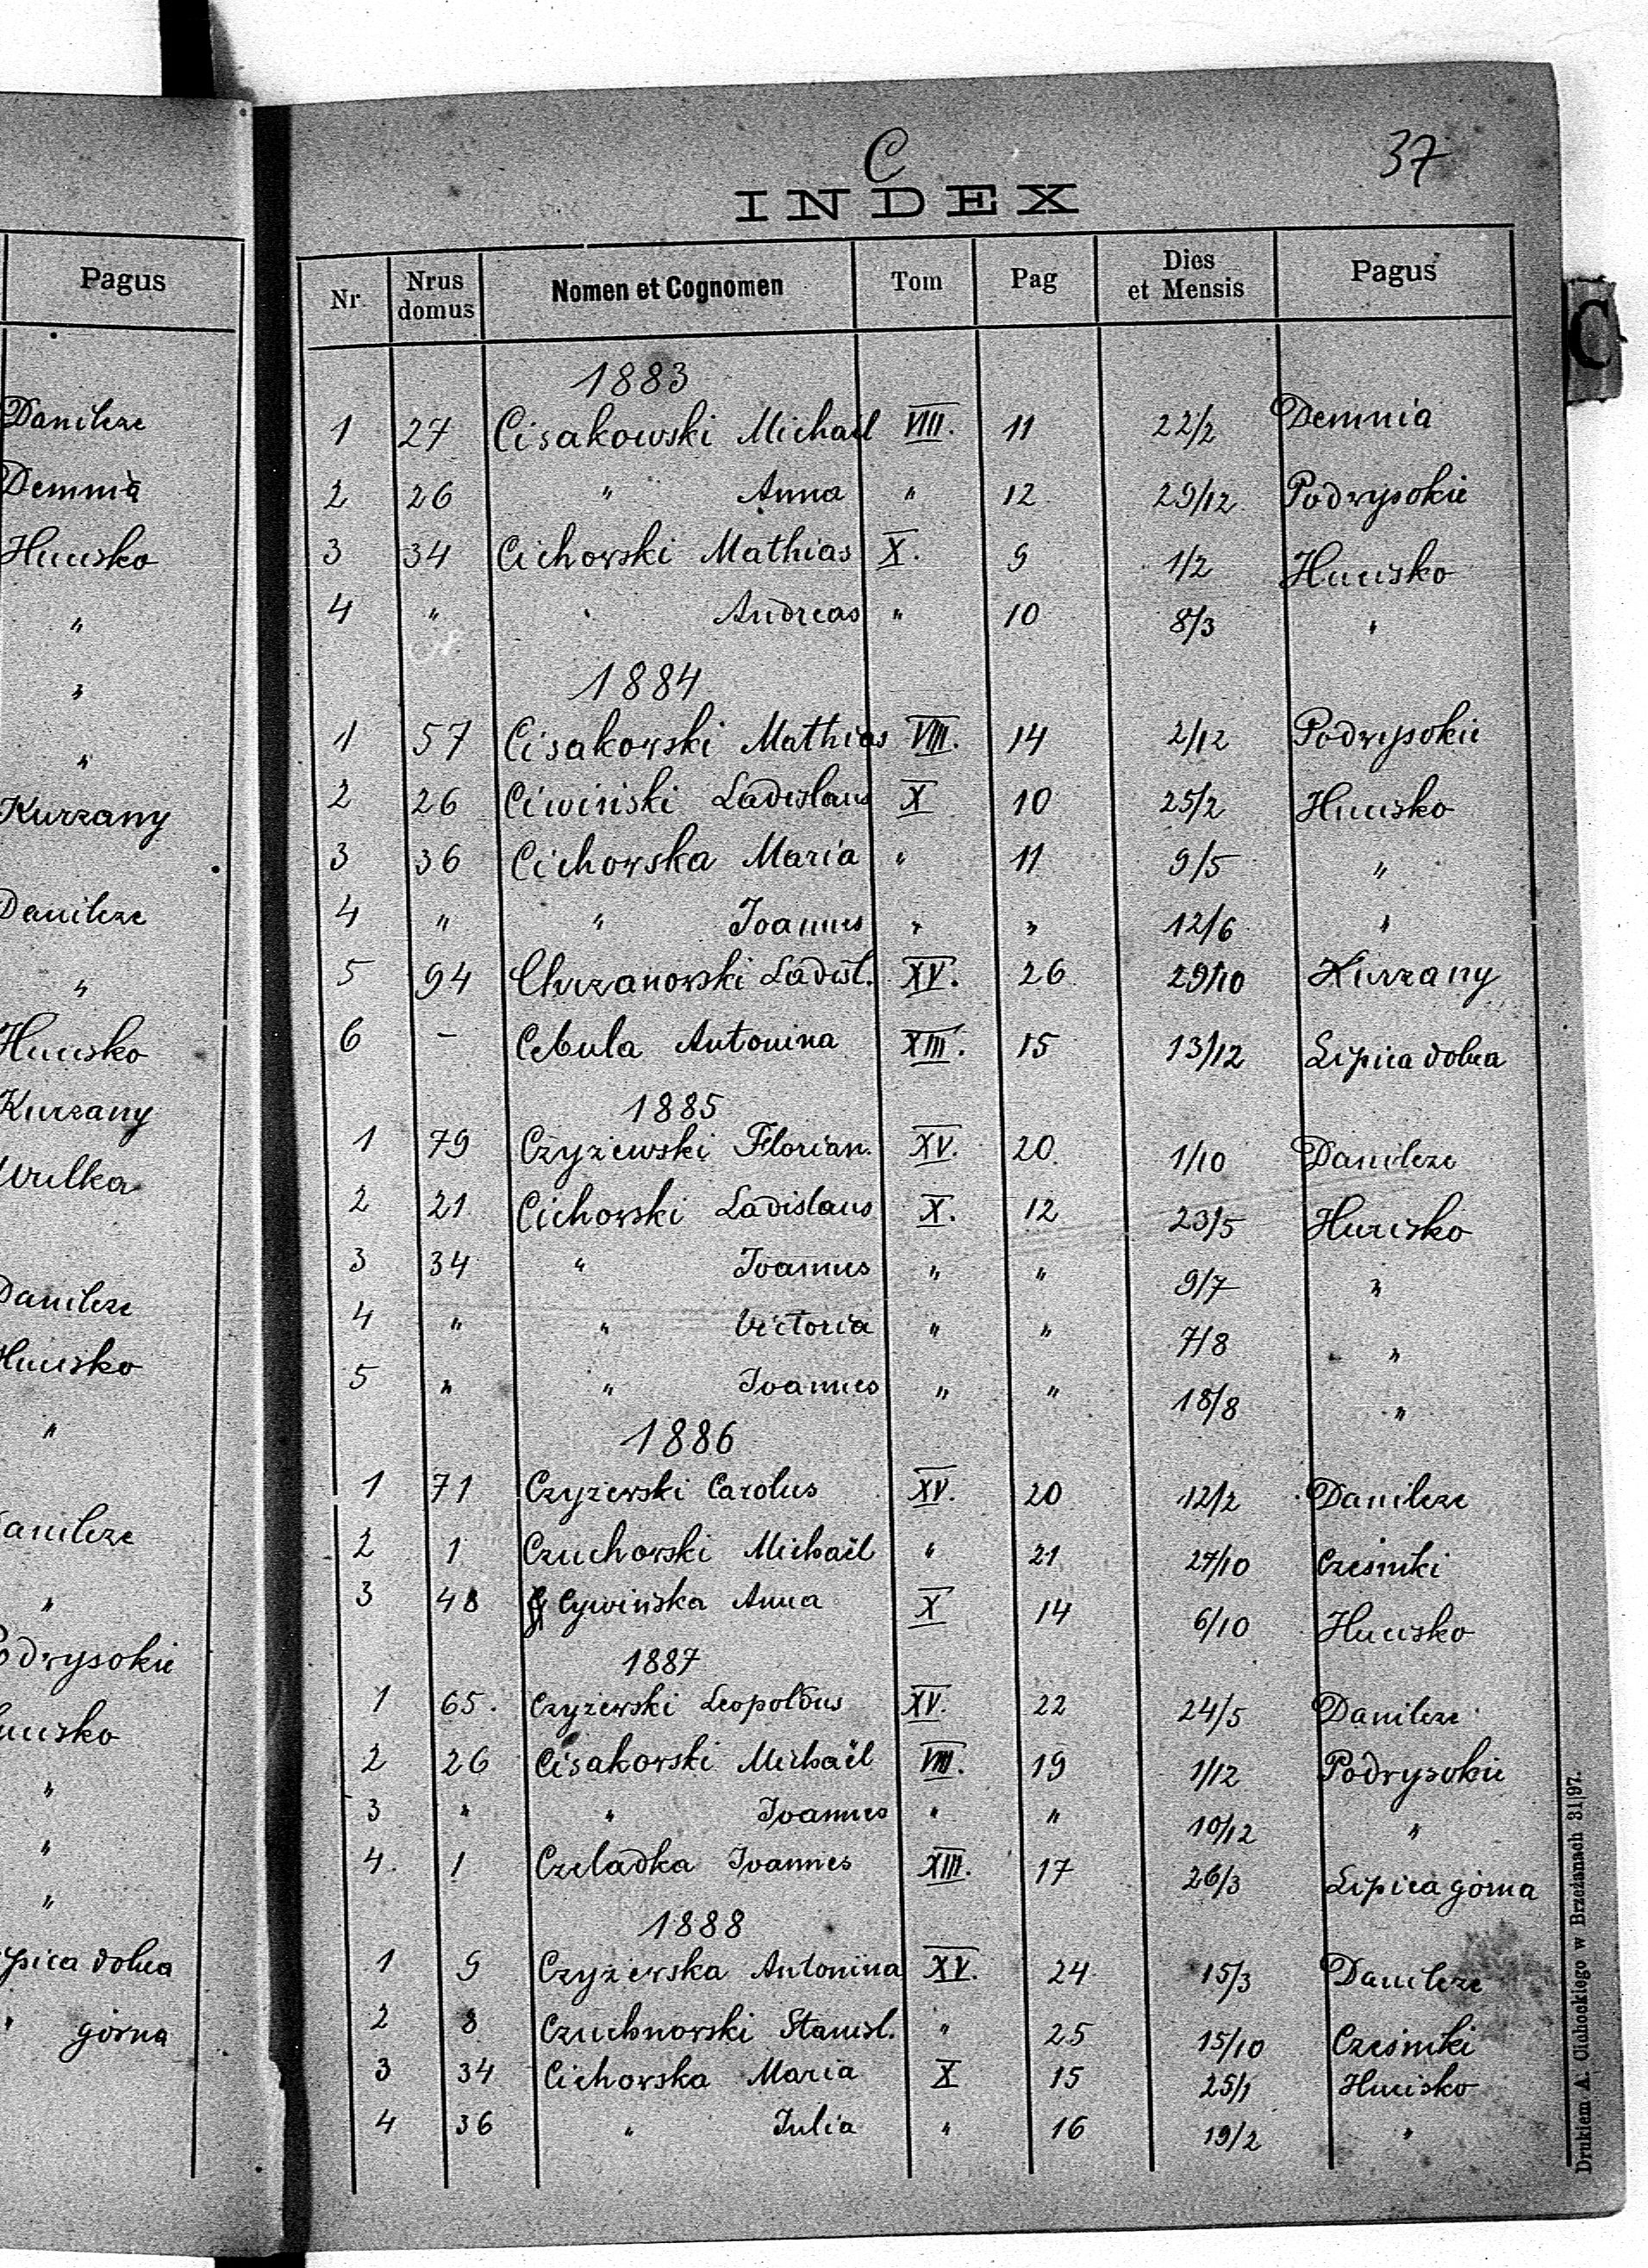 Pagus
Danilcze
Demnia
Hucisko
"
"
"
Kurzany
Danilcze
"
Hucisko
Kurzany
Wulka
Danilcze
Hucisko
"
anilcze
"
odwysokie
ucisko
"
"
"
ipica dolna
" górna
C
37
INDEX
Nr. Nrus domus Nomen et Cognomen Tom Pag Dies et Mensis Pagus
1883
1 27 Cisakowski Michaël VIII. 11 22/2 Demnia
2 26 " Anna " 12 29/12 Podwysokie
3 34 Cichowski Mathias X. 9 1/2 Hucisko
4 " " Andreas " 10 8/3 "
1884
1 57 Cisakowski Mathias VIII. 14 2/12 Podwysokie
2 26 Ciwiński Ladislaus X 10 25/2 Hucisko
3 36 Cichowska Maria " 11 9/5 "
4 " " Joannes " " 12/6 "
5 94 Chrzanowski Ladisl. XV. 26 29/10 Kurzany
6 – Cebula Antonina XIII. 15 13/12 Lipica dolna
1885
1 79 Czyżewski Florian. XV. 20 1/10 Danilcze
2 21 Cichowski Ladislaus X. 12 23/5 Hucisko
3 34 " Joannes " " 9/7 "
4 " " Victoria " " 7/8 "
5 " " Joannes " " 18/8 "
1886
1 71 Czyżewski Carolus XV. 20 12/2 Danilcze
2 1 Czuchowski Michaël " 21 27/10 Cześniki
3 48 Cywińska Anna X 14 6/10 Hucisko
1887
1 65. Czyżewski Leopoldus XV. 22 24/5 Danilcze
2 26 Cisakowski Michaël VIII. 19 1/12 Podwysokie
3 " " Joannes " " 10/12 "
4. 1 Czeladka Joannes XIII. 17 26/3 Lipica górna
1888
1 9 Czyżewska Antonina XV. 24 15/3 Danilcze
2 8 Czuchnowski Stanisl. " 25 15/10 Cześniki
3 34 Cichowska Maria X 15 25/1 Hucisko
4 36 " Julia " 16 19/2 "
C
Drukiem A. Cichockiego w Brzeżanach 31|97.